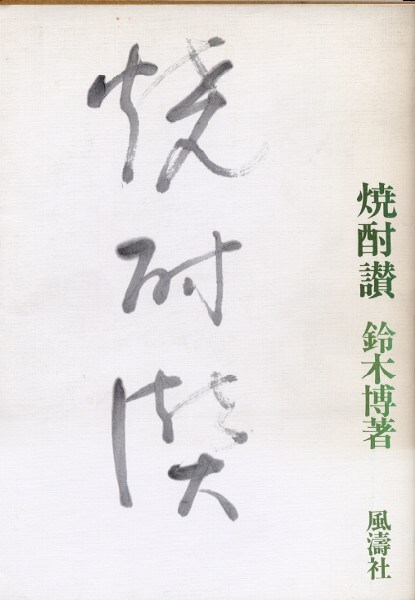 焼酎讃
鈴木博著
風濤社
焼酎讃